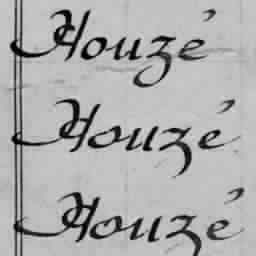 Houzé
Houzé
Houzé